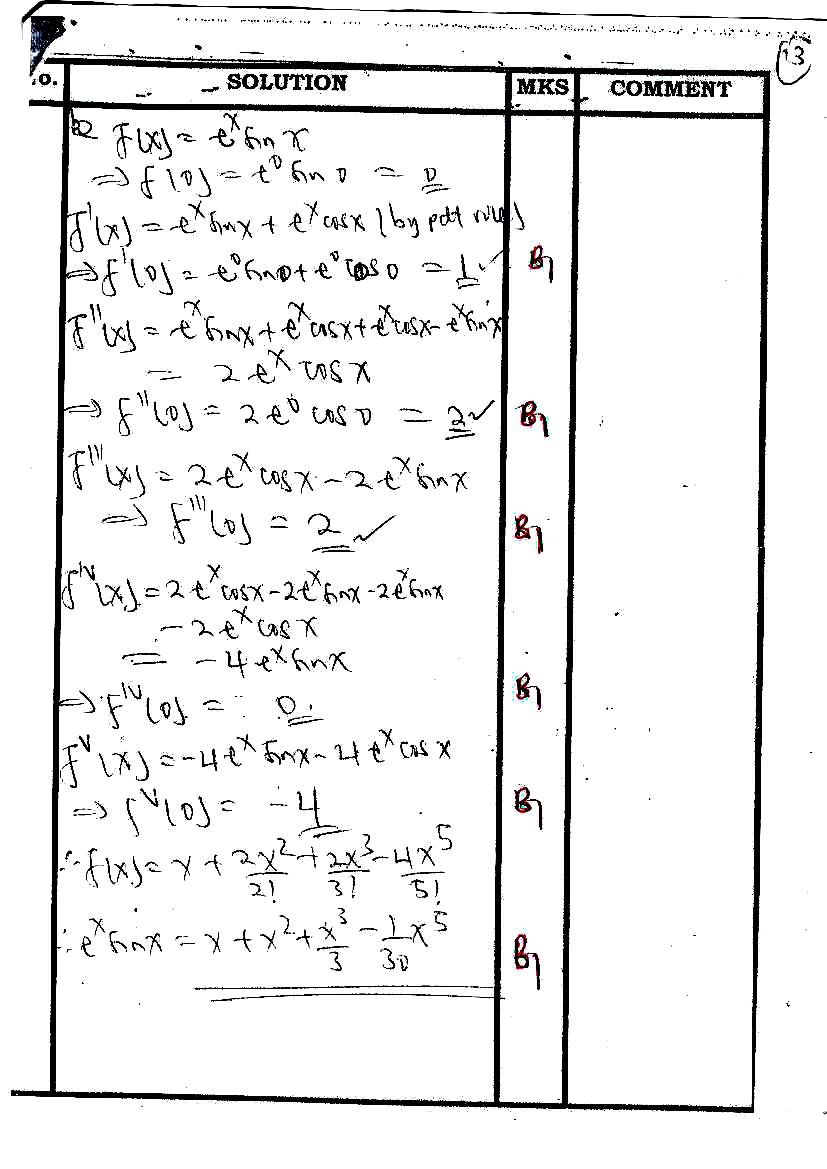 13
.o. SOLUTION MKS COMMENT
f(x) = e^x sin x
⇒ f(0) = e^0 sin 0 = 0
f'(x) = e^x sin x + e^x cos x (by pdt rule)
⇒ f'(0) = e^0 sin 0 + e^0 cos 0 = 1 ✓ B1
f''(x) = e^x sin x + e^x cos x + e^x cos x - e^x sin x
= 2e^x cos x
⇒ f''(0) = 2e^0 cos 0 = 2 ✓ B1
f'''(x) = 2e^x cos x - 2e^x sin x
⇒ f'''(0) = 2 ✓ B1
f^IV(x) = 2e^x cos x - 2e^x sin x - 2e^x sin x
- 2e^x cos x
= -4e^x sin x
⇒ f^IV(0) = 0 B1
f^V(x) = -4e^x sin x - 4e^x cos x
⇒ f^V(0) = -4 B1
∴ f(x) = x + 2x^2/2! + 2x^3/3! - 4x^5/5!
∴ e^x sin x = x + x^2 + x^3/3 - 1/30 x^5 B1